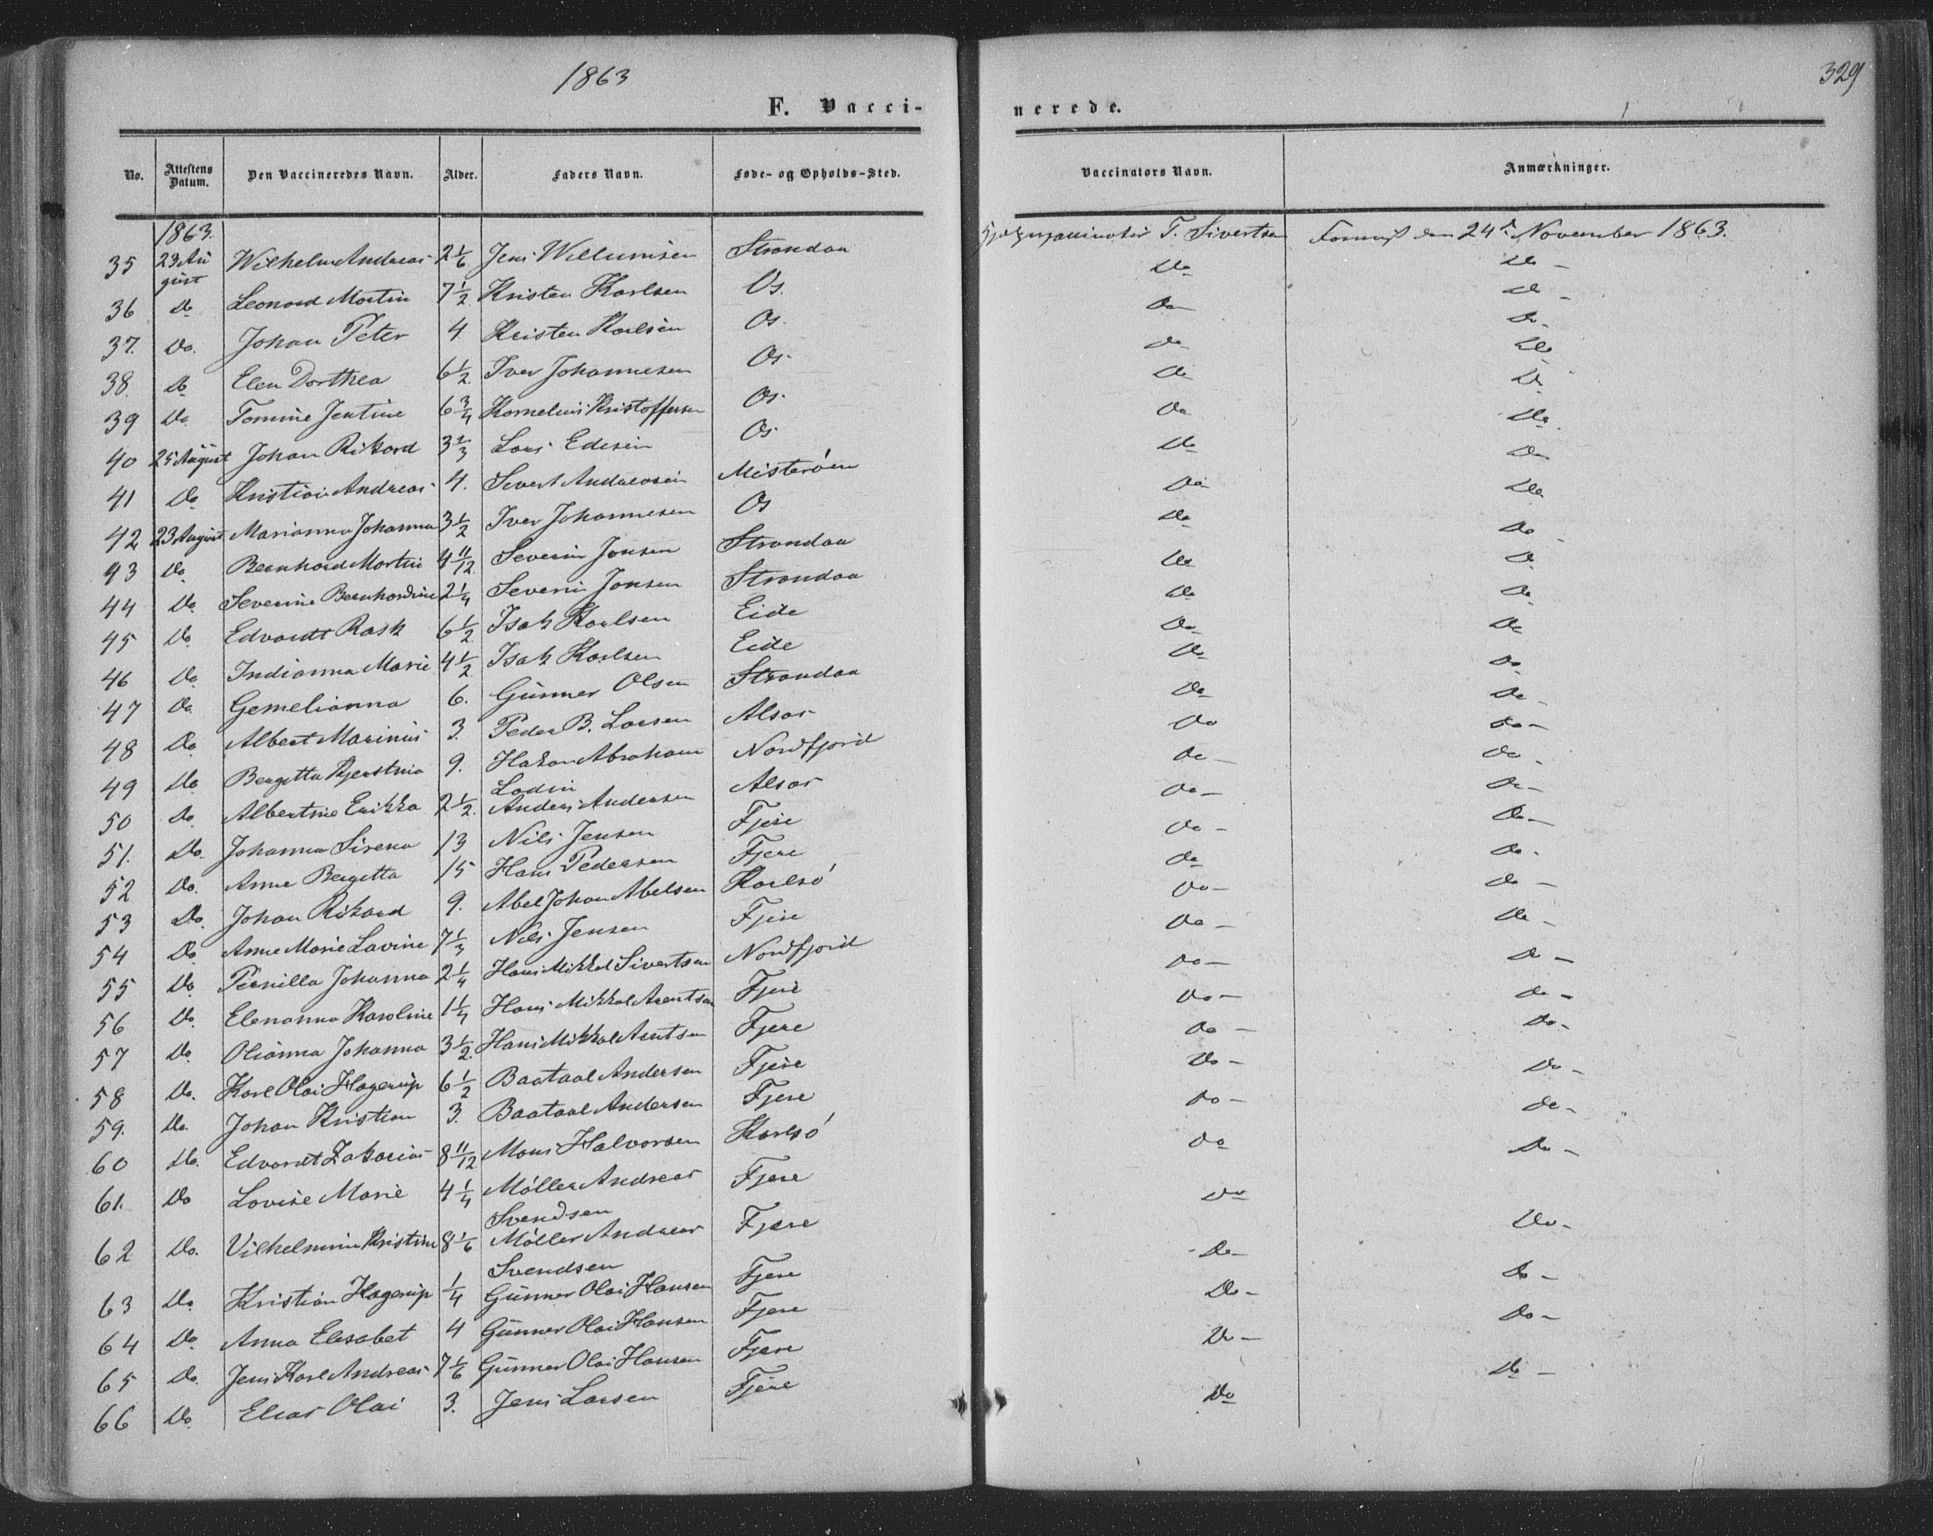 1863
329
F. Vacci-
nerede.
No.
Attestens Datum.
Den Vaccineredes Navn.
Alder.
Faders Navn.
Føde- og Opholds-Sted.
Vaccinators Navn.
Anmærkninger.
1863.
35 23 August Wilhelm Andreas 2 1/6 Jens Willumsen Strandaa T. Sivertsen den 24de November 1863.
36 Do Leonard Martin 7 1/2 Kristen Karlsen Os. Do Do -
37. Do. Johan Peter 4 Kristen Karlsen Os. Do Do -
38. Do Elen Dorthea 6 1/2 Iver Johannesen Os. Do Do -
39 Do. Tomine Jentine 6 3/4 Kornelius Kristoffersen Os. Do Do
40 25 August Johan Rikard 3 1/3 Lars Os Do Do
41 Do Kristian Andreas 4. Sivert Andreasen Misterøen Do Do
42 23 August Marianna Johanna 3 1/2 Iver Johannesen Os Do Do
43 Do Bernhard Martin 4 11/12 Severin Jensen Strandaa Do Do
44 Do. Severine Bernhardine 2 1/4 Severin Jensen Strandaa Do Do
45 Do Edvardt Rask 6 1/2. Isak Karlsen Eide Do Do
46 Do. Indianna Marie 4 1/2 Isak Karlsen Eide Do Do
47 Do. Gemelianna 6. Gunner Olsen Strandaa Do Do
48 Do Albert Marinius 3. Peder B. Larsen Alsos Do Do
49 Do Bergetta Kjerstina 9. Hakon Abraham Nordfjord Do Do -
Lodin
50 Do. Albertine Erikka 2 1/2. Anders Andersen Alsos Do - Do -
51. Do. Johanna Sirena 13 Nils Jensen Fjere Do - Do -
52 Do. Anne Bergetta 15 Hans Pedersen Fjere Do - Do -
53 Do. Johan Rikard 9. Abel Johan Abelsen Karlsø Do Do.
54 Do Anne Marie Lavine 7 1/3 Nils Jensen Fjere Do - Do -
55 Do Pernilla Johanna 2 1/4 Hans Mikkel Sivertsen Nordfjord Do - Do -
56 Do. Elenanna Karoline 1 1/4 Hans Mikkal Arentsen Fjere Do - Do -
57 Do. Olianna Johanna 3 1/2. Hans Mikkal Arentsen Fjere Do - Do -
58 Do. Karl Olai Hagerup 6 1/2 Baataal Andersen Fjere Do - Do -
59. Do. Johan Kristian 3. Baataal Andersen Fjere Do - Do -
60 Do. Edvardt Zakarias 8 11/12 Mons Halvorsen Karlsø Do - Do -
61. Do Lovise Marie 4 1/4 Møller Andreas Fjere Do Do -
Svendsen
62 Do. Vilhelmina Kristine 8 1/6 Møller Andreas Fjere Do Do -
Svendsen
63 Do. Kristian Hagerup 1/4 Gunner Olai Hansen Fjere Do - Do -
64 Do. Anna Elisabet 4 Gunner Olai Hansen Fjere Do - Do -
65 Do. Jens Karl Andreas 7 1/6 Gunner Olai Hansen Fjere Do - Do -
66 Do. Elias Olai 3. Jens Larsen Fjere Do